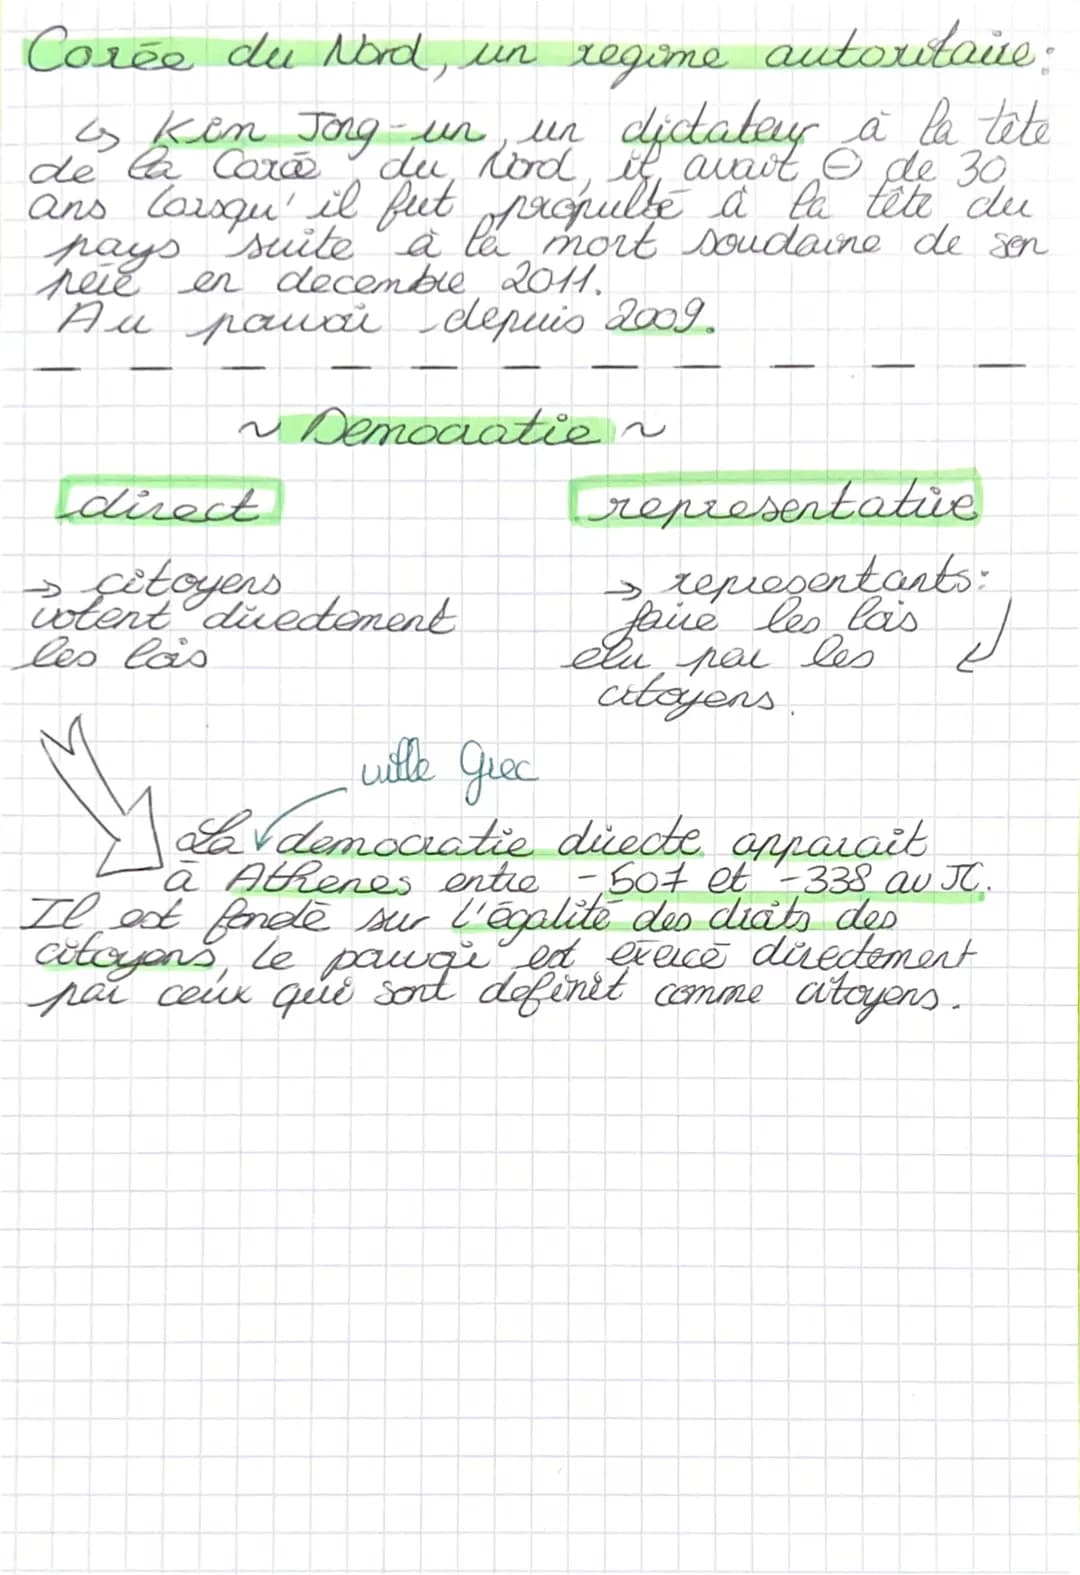 Corée du Nord, un regime autoritaire:
↳ Kim Jong-un, un dictateur à la tête
de la Corée du Nord, il avait ⊖ de 30
ans lorsqu'il fut propulsé à la tête du
pays suite à la mort soudaine de son
père en decembre 2011.
Au pouvoir depuis 2009.
~ Democratie ~
direct
representative
→ citoyens
votent directement
les lois
→ representants:
faire les lois
elu par les
citoyens.
ville Grec
La democratie directe apparait
à Athenes entre -507 et -338 av JC.
Il est fondé sur l'égalité des droits des
citoyens, le pouvoir est exercé directement
par ceux qui sont definit comme citoyens.